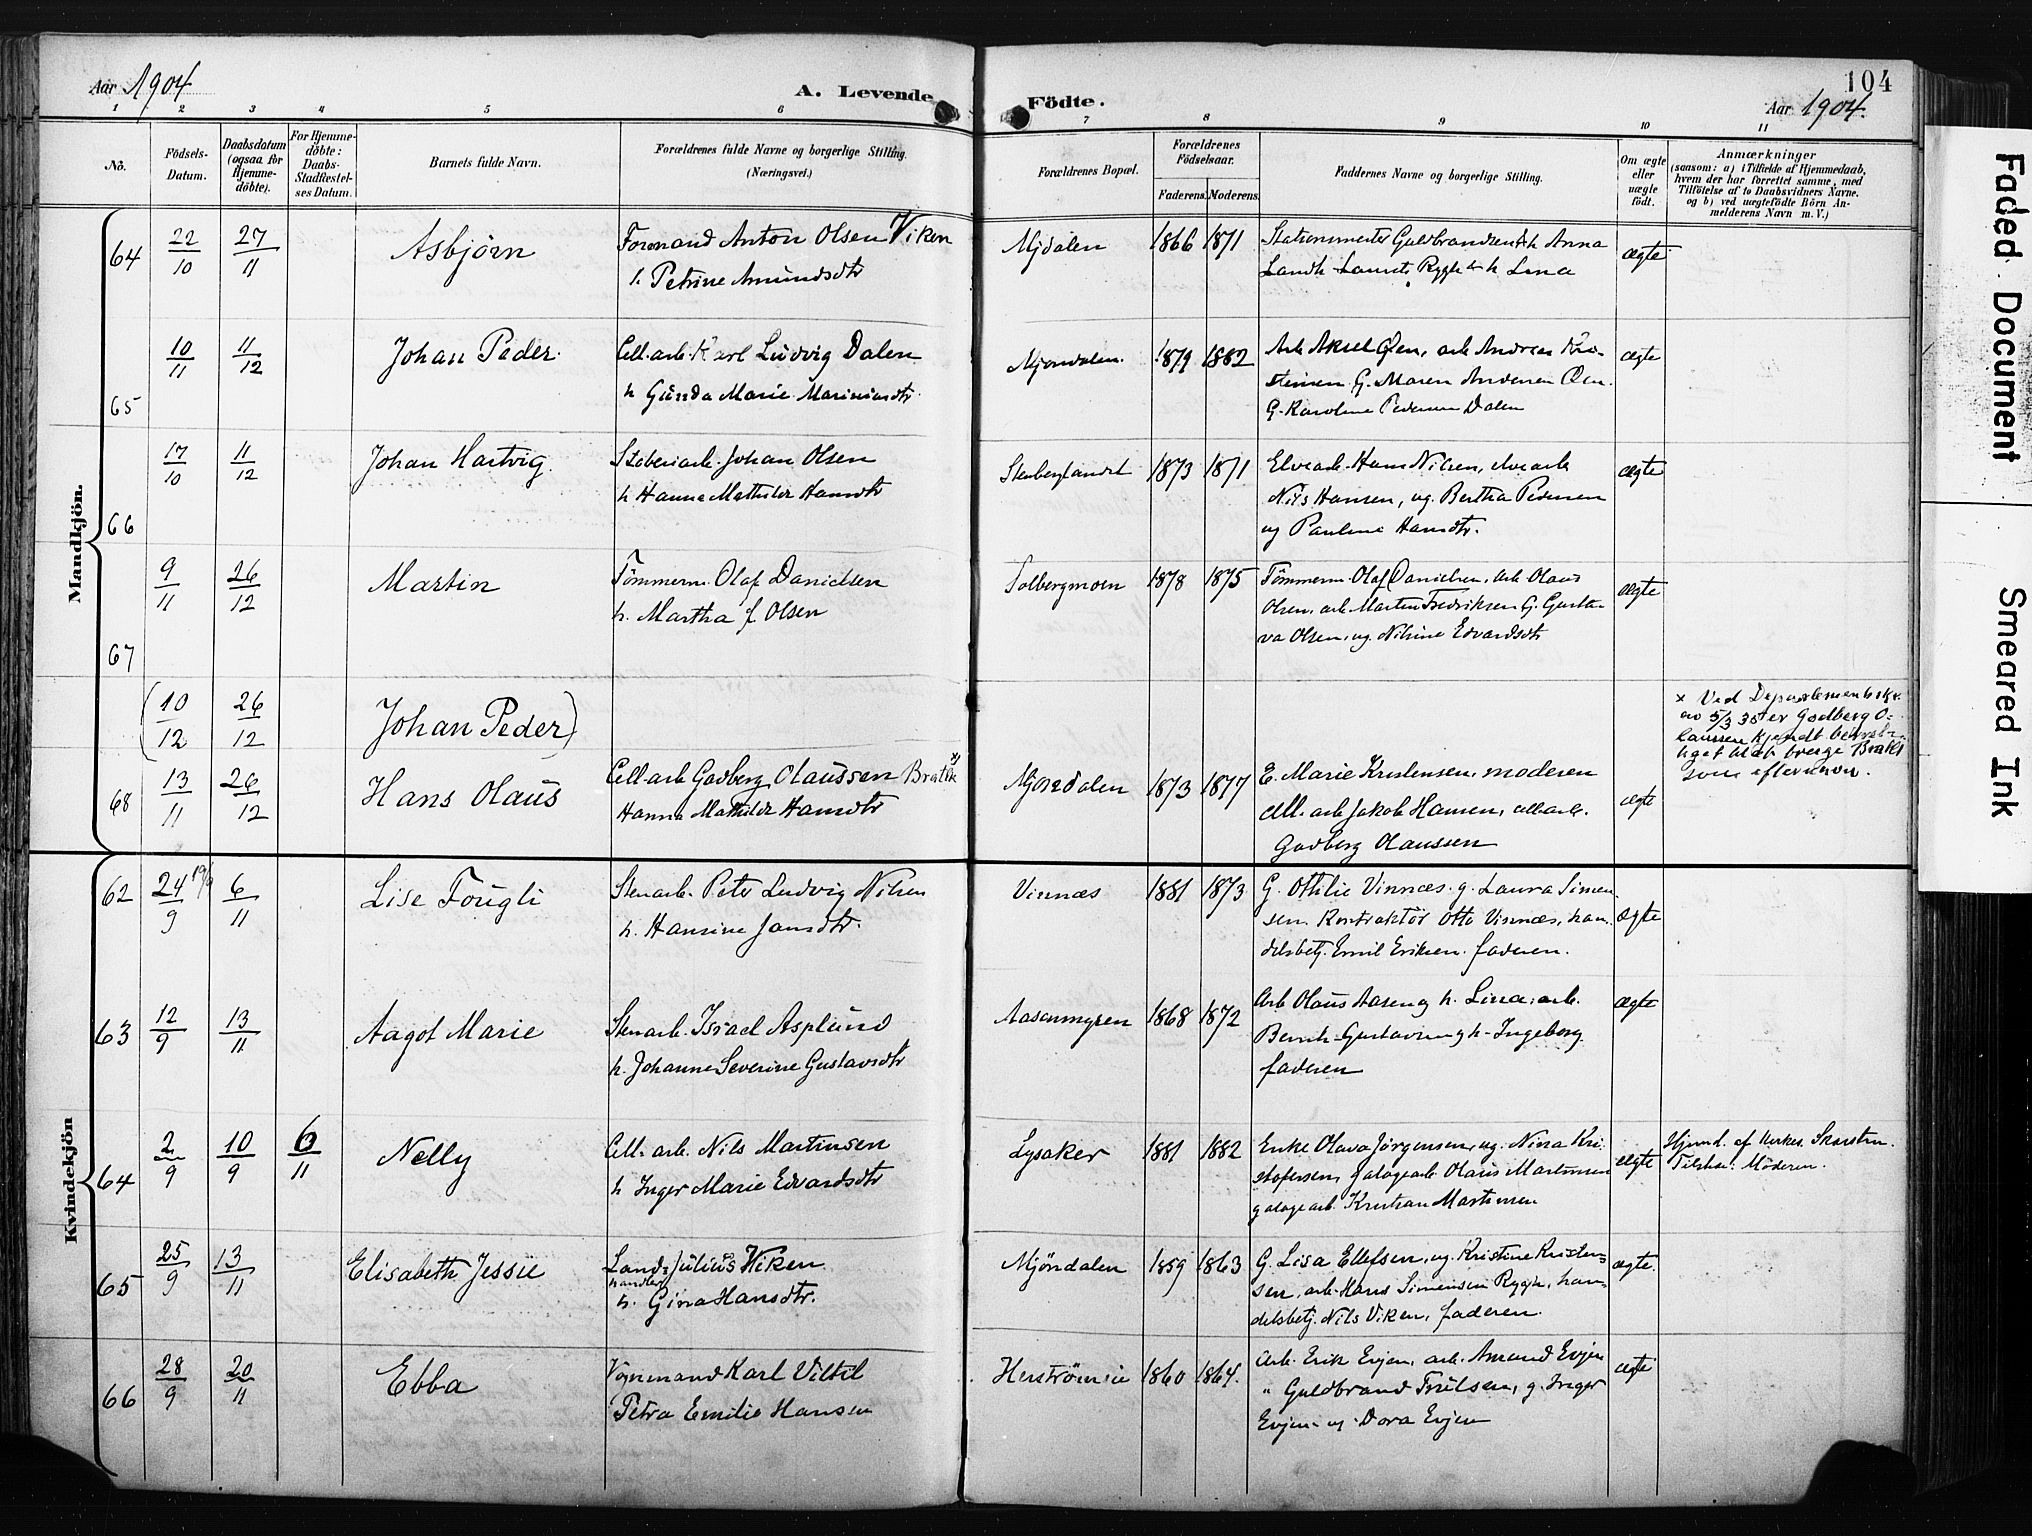 Aar 1904
A. Levende Födte.
104
Aar 1904.
1 2 3 4 5 6 7 8 9 10 11
No.
Födsels-Datum.
Daabsdatum (ogsaa for Hjemme-döbte).
For Hjemme-döbte: Daabs-Stadfæstel-ses Datum.
Barnets fulde Navn.
Forældrenes fulde Navne og borgerlige Stilling. (Næringsvei.)
Forældrenes Bopæl.
Forældrenes Födselsaar.
Faderens. Moderens.
Faddernes Navne og borgerlige Stilling.
Om ægte eller uægte födt.
Anmærkninger
(saasom: a) i Tilfælde af Hjemmedaab, hvem der har forrettet samme, med Tilföielse af to Daabsvidners Navne. og b) ved uægtefödte Börn An-melderens Navn m. V.)
Mandkjön.
64 22/10 27/11 Asbjörn
Anton Olsen Viken
Petrine Amundsdtr
Mjdalen 1866 1871
Stationsmester Guldbrandsen h Anna
Landh Laurits Rygh h Lina
ægte
65 10/11 11/12 Johan Peder.
Cell. arb. Karl Ludvig Dalen
h Gunda Marie
Mjøndalen. 1879 1882
Arb Aksel Øen, arb Andreas Kri-
stensen G. Maren Andersen Øen.
G. Karoline Pedersen Dalen
ægte
66 17/10 11/12 Johan Hartvig.
Johan Olsen
h Hanna Mathilde Hansdtr
1873 1871
Elvearb. Hans Nilsen, elvearb
Nils Hansen, ug. Bertha Pedersen
ug Pauline Hansdtr.
ægte
67 9/11 26/12 Martin
Tömmerm. Olaf Danielsen
h. Martha f. Olsen
Solbergmoen 1878 1875
Tömmerm Olaf Danielsen, arb Olaus
Olsen, arb Martin Fredriksen G. Gusta-
va Olsen, ug. Nilsine Edvardsdtr
ægte
(10/12 26/12 Johan Peder)
68 13/11 26/12 Hans Olaus
Cell-arb Godberg Olaussen Bratli x)
Hanna Mathilde Hansdtr
Mjøndalen 1873 1877
E. Marie Kristensen, moderen
cell. arb Jakob Hansen, cell arb.
Godberg Olaussen
ægte
x Ved Departementsskr.
av 5/3 35 er Godberg O-
laussen kjendt beret-
tiget til at bruge Bratli
som efternavn.
Kvindekjön
62 24/9 6/11 Lise Fougli
Stenarb. Peter Ludvig Nilsen
h. Hansine Jansdtr.
Vinnæs 1881 1873
G. Othilie Vinnæs. g. Laura Simen
sen. Kontraktör Otto Vinnæs, han
delsbetj. Emil Eriksen. faderen.
ægte
63 12/9 13/11 Aagot Marie
Stenarb. Israel Asplund
h. Johanne Severine Gustavsdtr
Aasenmyren 1868 1872
Arb Olaus Aasen og h. Lina. arb.
Gustavsen og h. Ingeborg
faderen
ægte
64 2/9 10/9 6/11 Nelly
Cell. arb. Nils Martinsen
h Inger Marie Edvardsdtr
Lysaker 1881 1882
Enke Olava Jörgensen, ug. Nina Kri-
stofersen, galogearb Olaus Martinsen
galogearb. Kristian Martinsen
ægte
Hjemd. af
Moderen.
65 25/9 13/11 Elisabeth Jessie
Landhandler Julius Viken
h. Gina Hansdtr.
Mjöndalen 1859 1863
G. Lisa Ellefsen, ug. Kristine Kristen-
sen, arb. Hans Simensen Rygh, han-
delsbetj. Nils Viken, faderen.
ægte.
66 28/9 20/11 Ebba
Vognmand Karl Viltil
Petra Emilie Hansen
1860 1864.
Arb. Erik Evjen, arb. Amund Evjen
" Guldbrand Truelsen, g. Inger
Evjen ug. Dora Evjen
ægte
Faded Document
Smeared Ink